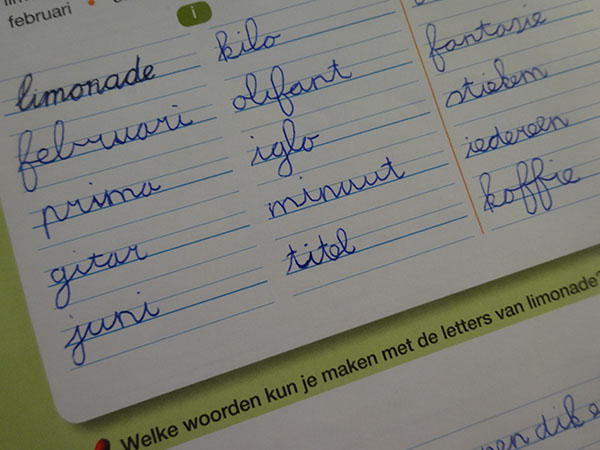 februari
i
limonade
februari
prima
gitar
juni
kilo
olifant
iglo
minuut
titel
fantasie
stiekem
iedereen
koffie
Welke woorden kun je maken met de letters van limonade?